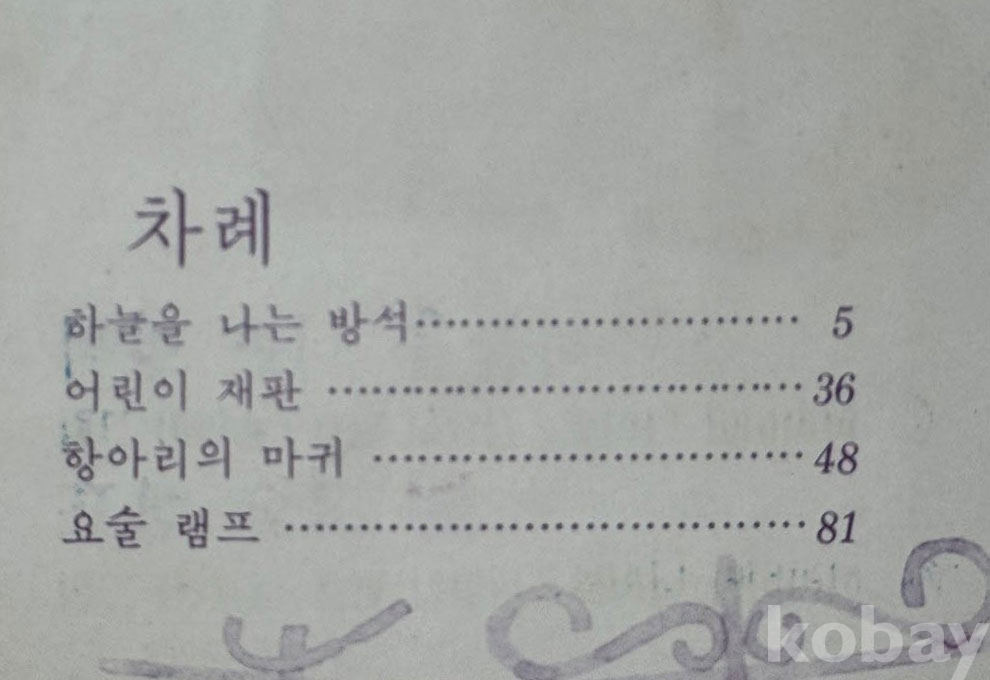 차례
하늘을 나는 방석 ································ 5
어린이 재판 ································ 36
항아리의 마귀 ································ 48
요술 램프 ································ 81
kobay